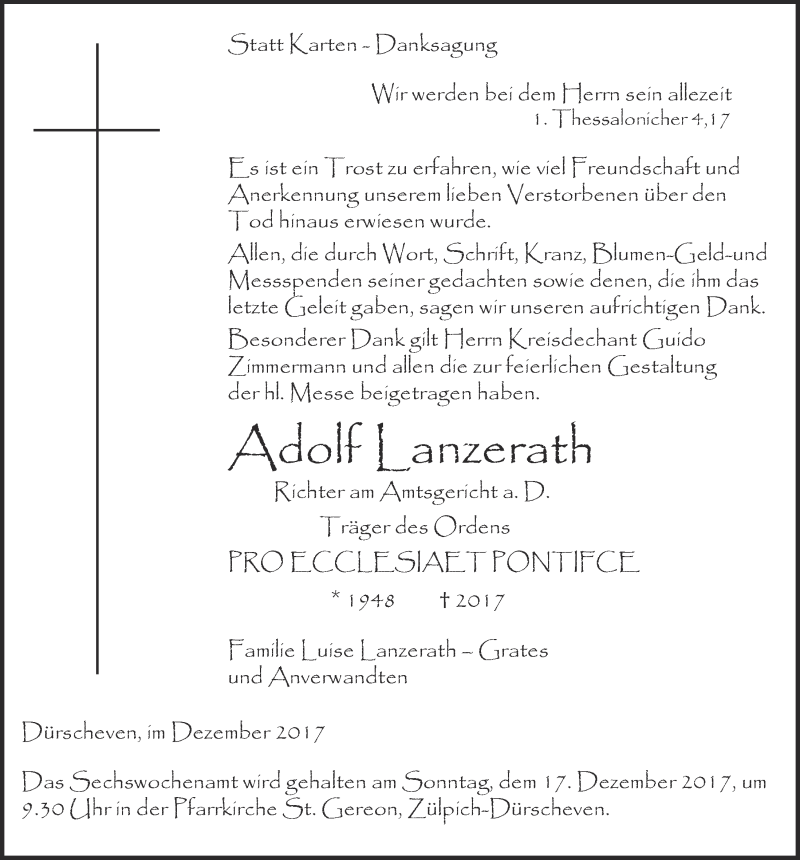 Statt Karten - Danksagung
Wir werden bei dem Herrn sein allezeit
1. Thessalonicher 4,17
Es ist ein Trost zu erfahren, wie viel Freundschaft und
Anerkennung unserem lieben Verstorbenen über den
Tod hinaus erwiesen wurde.
Allen, die durch Wort, Schrift, Kranz, Blumen-Geld-und
Messspenden seiner gedachten sowie denen, die ihm das
letzte Geleit gaben, sagen wir unseren aufrichtigen Dank.
Besonderer Dank gilt Herrn Kreisdechant Guido
Zimmermann und allen die zur feierlichen Gestaltung
der hl. Messe beigetragen haben.
Adolf Lanzerath
Richter am Amtsgericht a. D.
Träger des Ordens
PRO ECCLESIAET PONTIFCE
* 1948 † 2017
Familie Luise Lanzerath – Grates
und Anverwandten
Dürscheven, im Dezember 2017
Das Sechswochenamt wird gehalten am Sonntag, dem 17. Dezember 2017, um
9.30 Uhr in der Pfarrkirche St. Gereon, Zülpich-Dürscheven.